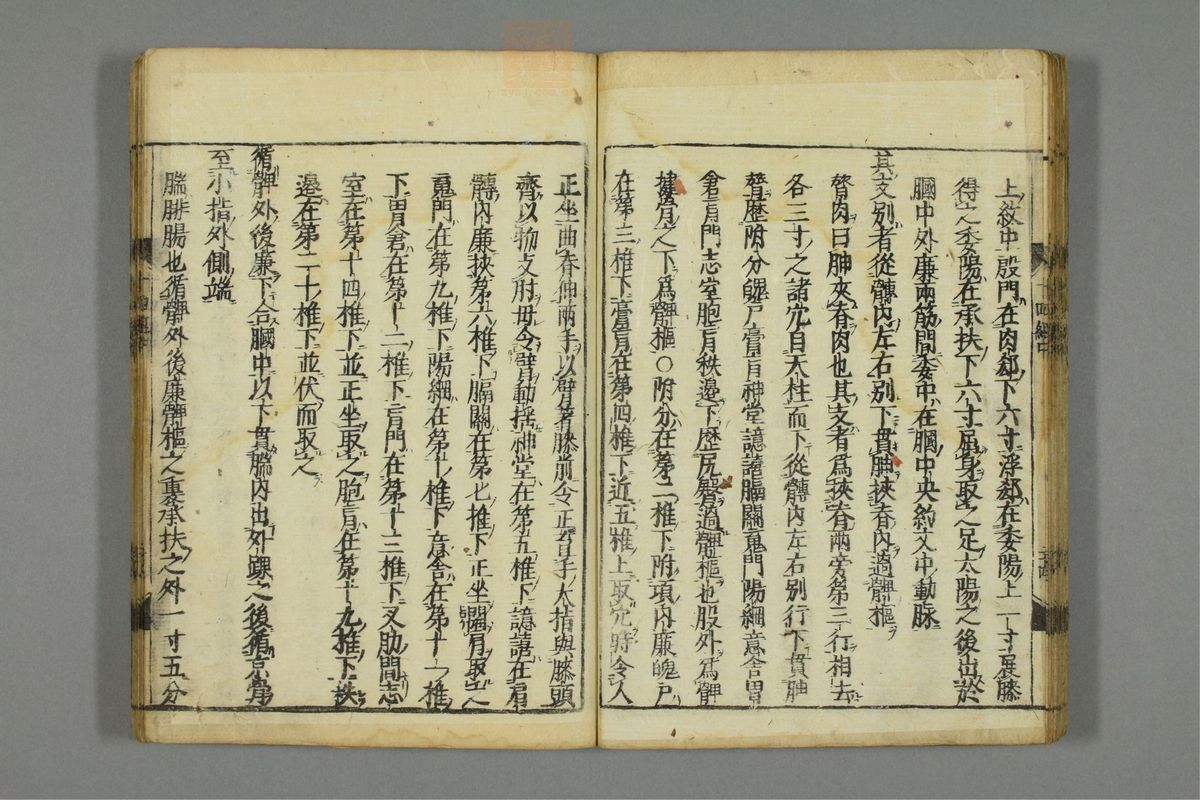 上紋中殷門在肉郄下六寸浮郄在委陽上一寸展膝
得之委陽在承扶下六寸屈身取之足太陽之後出於
膕中外廉兩筋間委中在膕中央約文中動脉
其支別者從髆內左右別下貫胂挾脊內過髀樞
膂肉曰胂夾脊肉也其支者爲挾脊兩旁第三行相去
各三寸之諸穴自天柱而下從髆內左右別行下貫胂
膂歷附分魄戶膏肓神堂譩譆膈關魂門陽綱意舍胃
倉肓門志室胞肓秩邊下歷尻臋過髀樞也股外爲髀
揵骨之下爲髀樞〇附分在第二椎下附項內廉魄戶
在第三椎下膏肓在第四椎下近五椎上取穴時令人
正坐曲脊伸兩手以臂著膝前令正直手大指與膝頭
齊以物支肘毋令臂動搖神堂在第五椎下譩譆在肩
髆內廉挾第六椎下膈關在第七推下正坐闊肩取之
魂門在第九椎下陽綱在第十椎下意舍在第十一椎
下胃倉在第十二椎下肓門在第十三椎下叉肋間志
室在第十四椎下並正坐取之胞肓在第十九推下秩
邊在第二十椎下並伏而取之
循髀外後廉下合膕中以下貫腨內出外踝之後循京骨
至小指外側端
腨腓腸也循髀外後廉髀樞之裏承扶之外一寸五分
十四經中